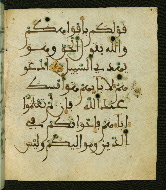 قولكم بأفوهكم
والله يقول الحق وهو
يهدي السبيل ادعو
هم لآبائهم هو أقسط
عند الله فإن لم تعلموا
آباءهم فإخوانكم في
الدين ومواليكم وليس